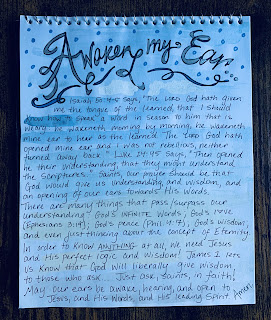 Awaken my Ear
Isaiah 50:4-5 says, "The LORD God hath given
me the tongue of the learned, that I should
know how to speak a word in season to him that is
weary: he wakeneth morning by morning, he wakeneth
mine ear to hear as the learned. The Lord God hath
opened mine ear, and I was not rebellious, neither
turned away back." Luke 24:45 says, "Then opened
he their understanding that they might understand
the Scriptures." Saints, our prayer should be that
God would give us understanding, and wisdom, and
an opening of our ear towards His Words.
There are many things that pass/surpass our
understanding - God's INFINITE Words, God's love
(Ephesians 3:19), God's peace (Phil 4:7), God's wisdom,
and even just thinking about the concept of Eternity.
In order to know ANYTHING at all, we need Jesus
and His perfect logic and Wisdom! James 1 lets
us know that God will liberally give wisdom
to those who ask... Just ask, saints, in faith!
May our ears be awake, hearing, and open to
Jesus, and His Words, and His leading Spirit. Amen!